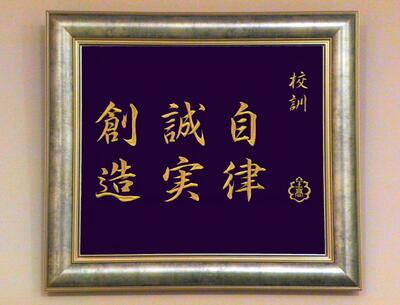 校訓
自律
誠実
創造